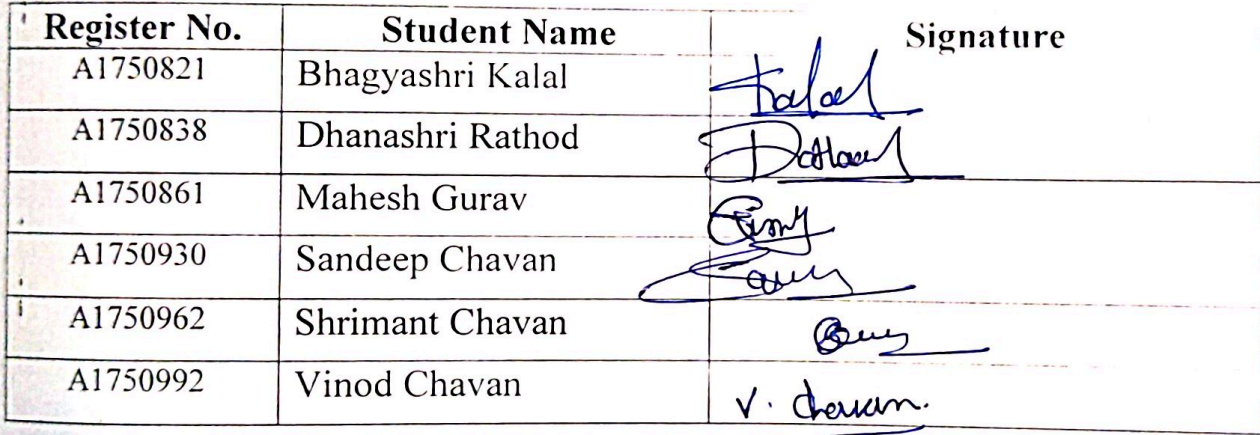 Register No. Student Name Signature
A1750821 Bhagyashri Kalal Kalal
A1750838 Dhanashri Rathod
A1750861 Mahesh Gurav
A1750930 Sandeep Chavan
A1750962 Shrimant Chavan
A1750992 Vinod Chavan V. Chavan.